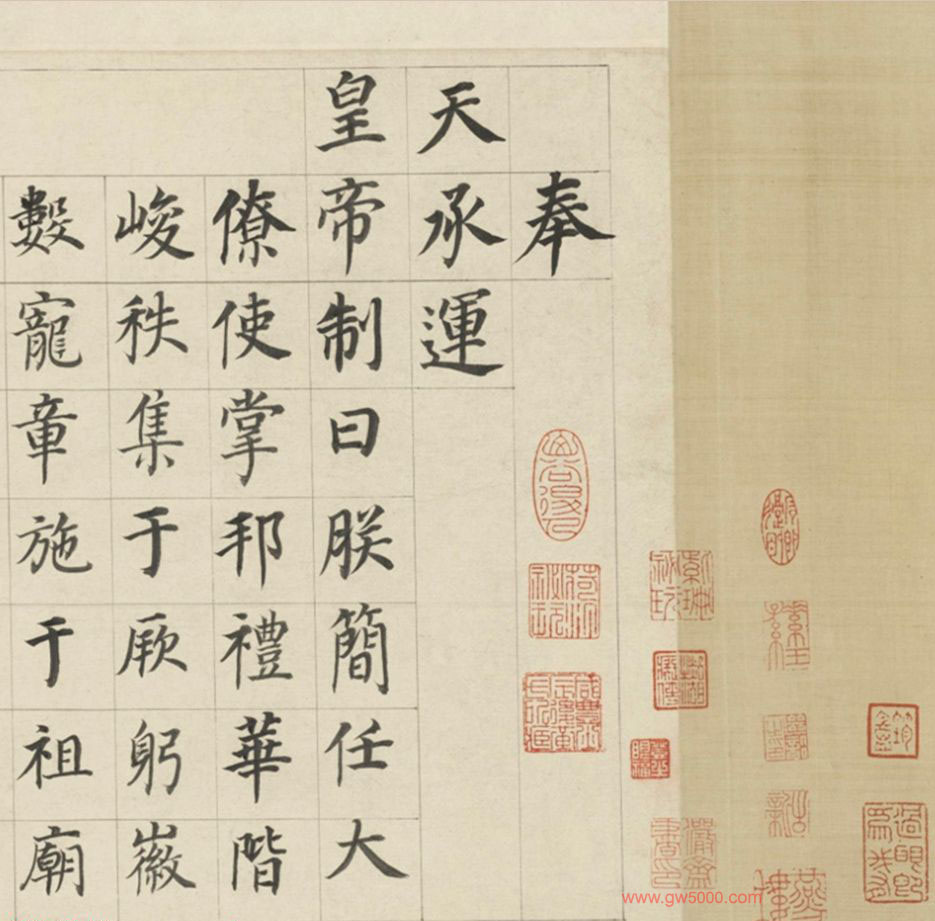 奉
天承運
皇帝制曰朕簡任大
僚使掌邦禮華階
峻秩集于厥躬徽
數寵章施于祖廟
www.gw5000.com